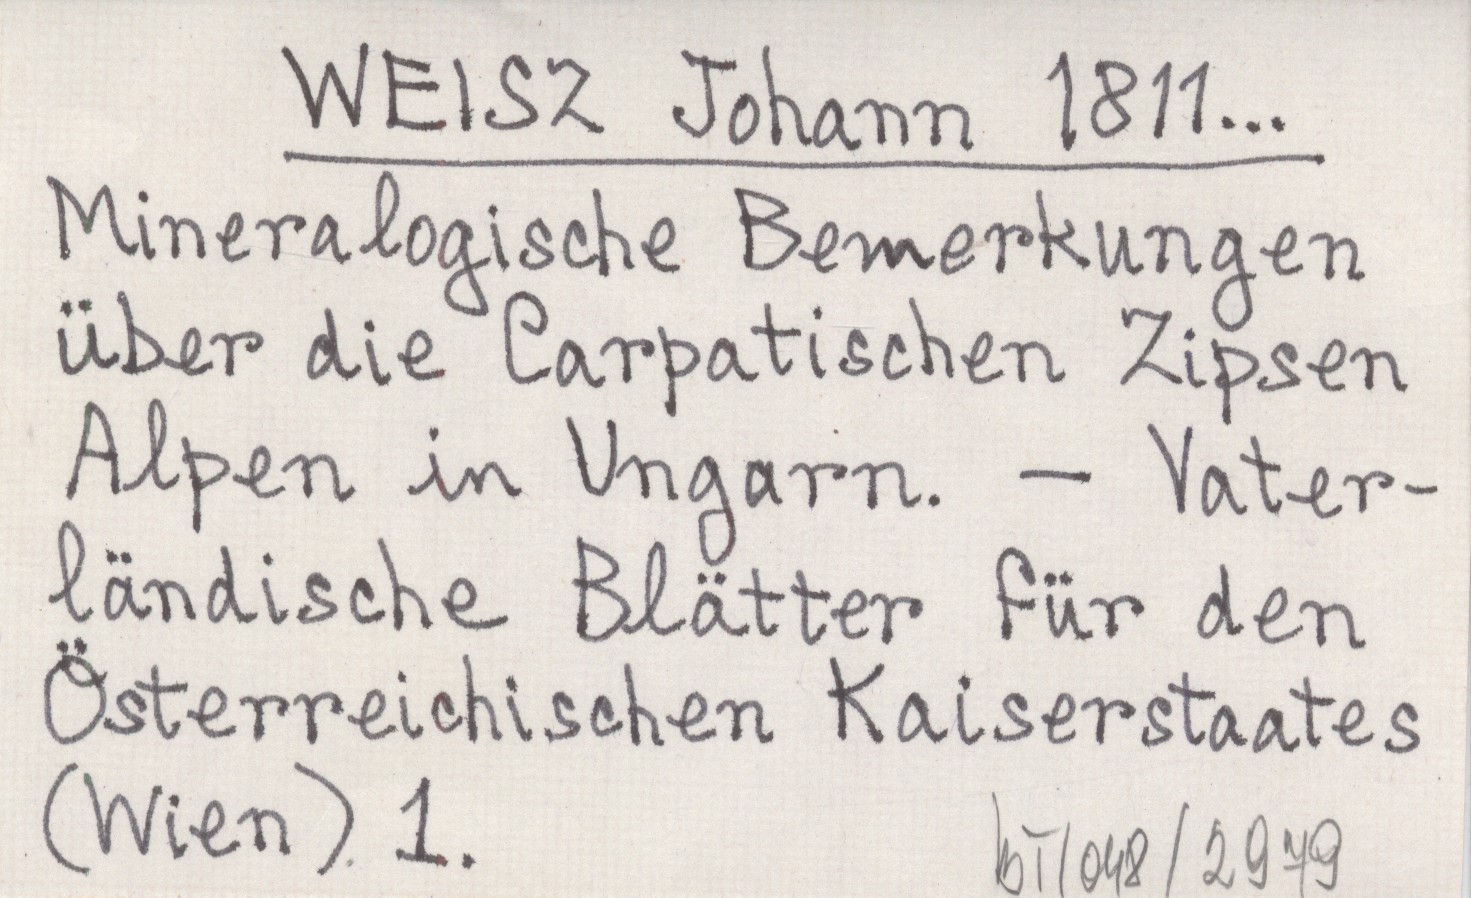 WEISZ Johann 1811...
Mineralogische Bemerkungen
über die Carpatischen Zipsen
Alpen in Ungarn. – Vater-
ländische Blätter für den
Österreichischen Kaiserstaates
(Wien). 1.
bT/048/2979